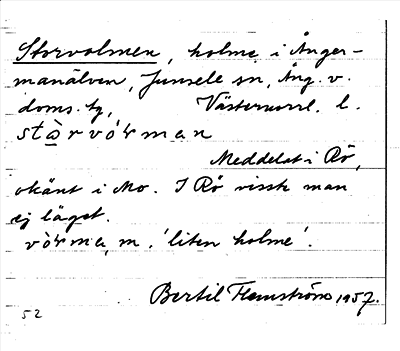 Storvolmen, holme i Ånger-
manälven, Junsele sn, Ång. v.
doms. tg, Västernorrl. l.
stàrvòrman
Meddelat i Rö,
okänt i Mo. I Rö visste man
ej läget.
vòrma, m. 'liten holme'.
Bertil Flemström 1957.
52